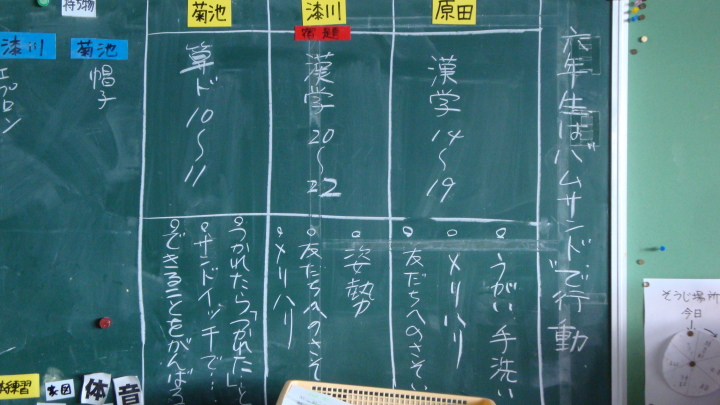 六年生はハムサンドで行動
原田
漢学 14〜19
うがい手洗い
メリハリ
友だちへのさそい
漆川
宿題
漢学 20〜22
姿勢
友だちへのさそ
メリハリ
菊池
算ド 10〜11
つかれたら「つかれた」と
サンドイッチで…
できることをがんばる
持ち物
菊池
帽子
漆川
エプロン
練習
図
体
音
そうじ場所
今日